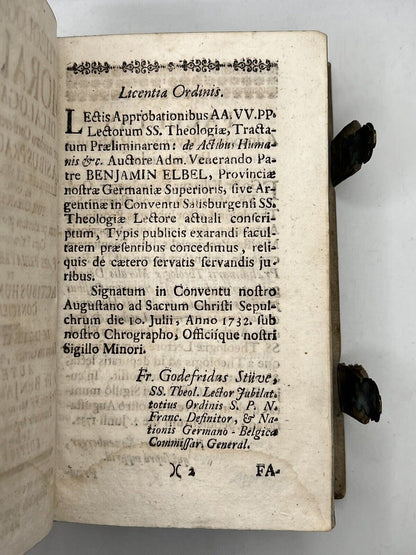 Licentia Ordinis.
LEctis Approbationibus AA. VV. PP.
Lectorum SS. Theologiæ, Tracta-
tum Præliminarem: de Actibus Huma-
nis &c. Auctore Adm. Venerando Pa-
tre BENJAMIN ELBEL, Provinciæ
nostræ Germaniæ Superioris, sive Ar-
gentinæ in Conventu Salisburgensi SS.
Theologiæ Lectore actuali conscri-
ptum, Typis publicis exarandi facul-
tatem præsentibus concedimus, reli-
quis de cætero servatis servandis ju-
ribus.
Signatum in Conventu nostro
Augustano ad Sacrum Christi Sepul-
chrum die 10. Julii, Anno 1732. sub
nostro Chrographo, Officiique nostri
Sigillo Minori.
Fr. Godefridus Stüve,
SS. Theol. Lector Jubilat.
totius Ordinis S. P. N.
Franc. Definitor, & Na-
tionis Germano-Belgicæ
Commissar. General.
)( 2 FA-